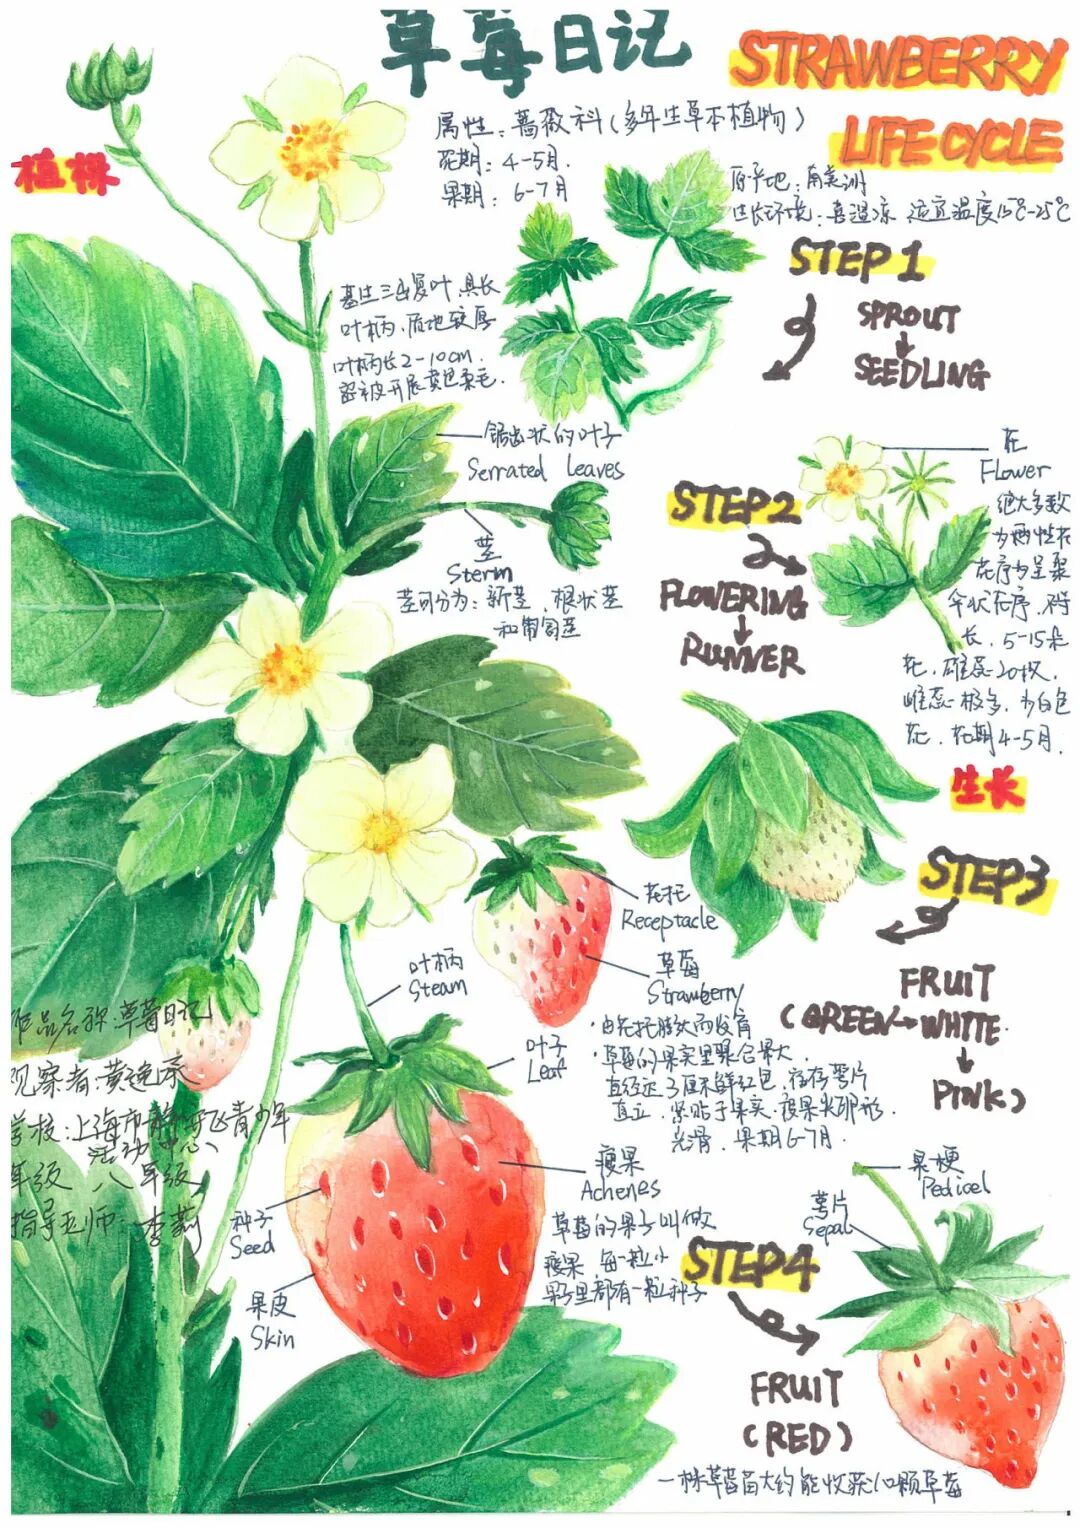 草莓日记
STRAWBERRY
LIFE CYCLE
植株
属性：蔷薇科(多年生草本植物)
花期：4-5月.
果期：6-7月
原产地：南美洲
生长环境：喜温凉 适宜温度15℃-25℃
STEP 1
SPROUT
↓
SEEDLING
基生三出复叶.具长
叶柄.质地较厚
叶柄长2-10cm.
密被开展黄色柔毛.
锯齿状的叶子
Serrated leaves
茎
Sterm
茎可分为：新茎、根状茎
和匍匐茎
花
Flower
STEP2
FLOWERING
↓
RUNNER
绝大多数
为两性花
花序为呈聚
伞状花序.
长.5-15朵
花.雄蕊20枚.
雌蕊极多.为白色
花.花期4-5月.
生长
STEP3
FRUIT
(GREEN→WHITE
↓
PINK)
花托
Receptacle
草莓
Strawberry
·由花托膨大而发育
·草莓的果实呈聚合果大.
直径达3厘米鲜红色.宿存萼片
直立.紧贴于果实.瘦果尖卵形.
光滑.果期6-7月.
叶柄
Steam
叶子
Leaf
作品名称：草莓日记
观察者：黄逸
学校：上海市静安区青少年
活动中心
年级 八年级
指导老师：李莉
种子
Seed
果皮
Skin
瘦果
Achenes
草莓的果子叫做
瘦果 每一粒小
果子里都有一粒种子
果梗
Pedicel
萼片
Sepal
STEP4
FRUIT
(RED)
一株草莓苗大约能收获10颗草莓